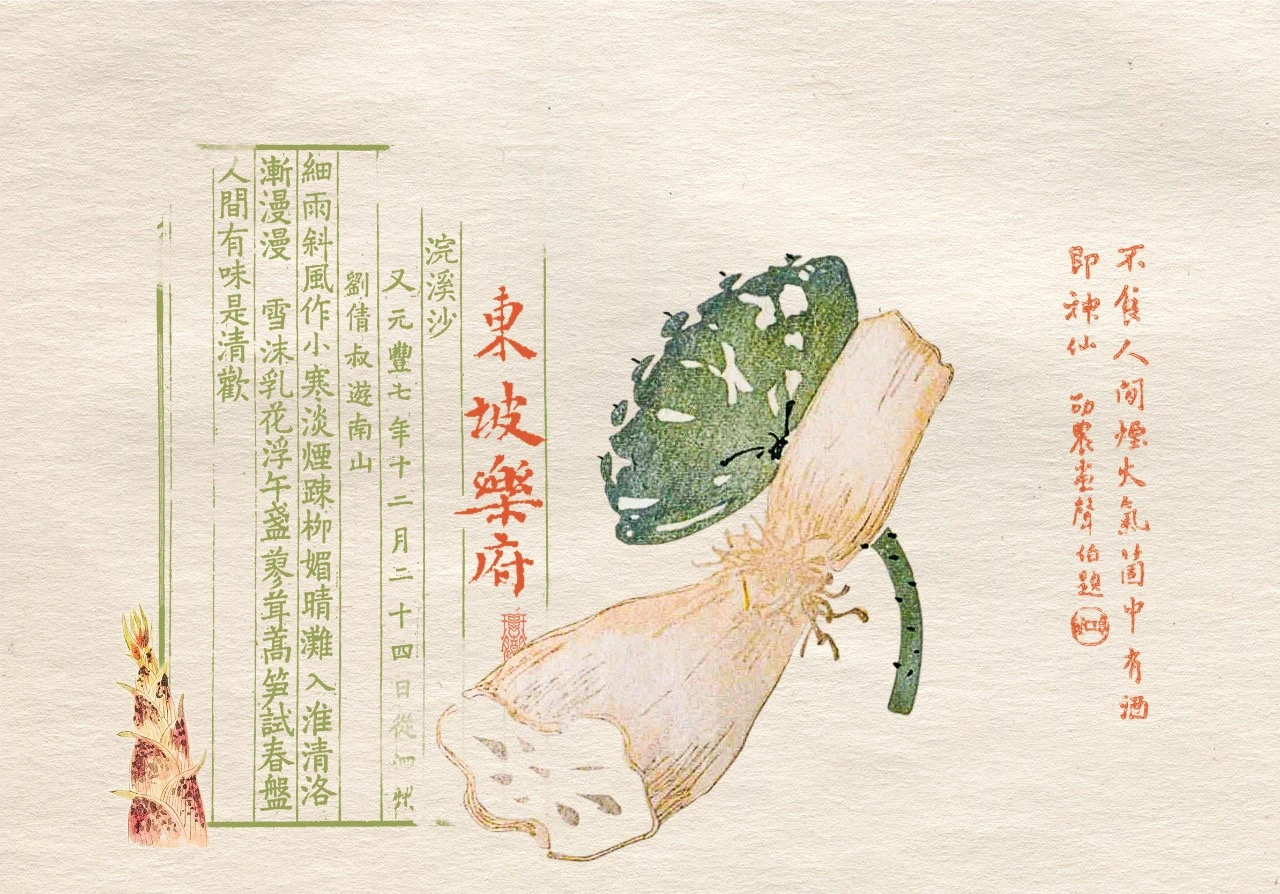 不食人間煙火氣箇中有酒
即神仙 劭農畫聲伯題
東坡樂府
浣溪沙
又元豐七年十二月二十四日從泗州
劉倩叔遊南山
細雨斜風作小寒淡煙踈柳媚晴灘 入淮清洛
漸漫漫 雪沫乳花浮午盞蓼茸蒿笋試春盤
人間有味是清歡